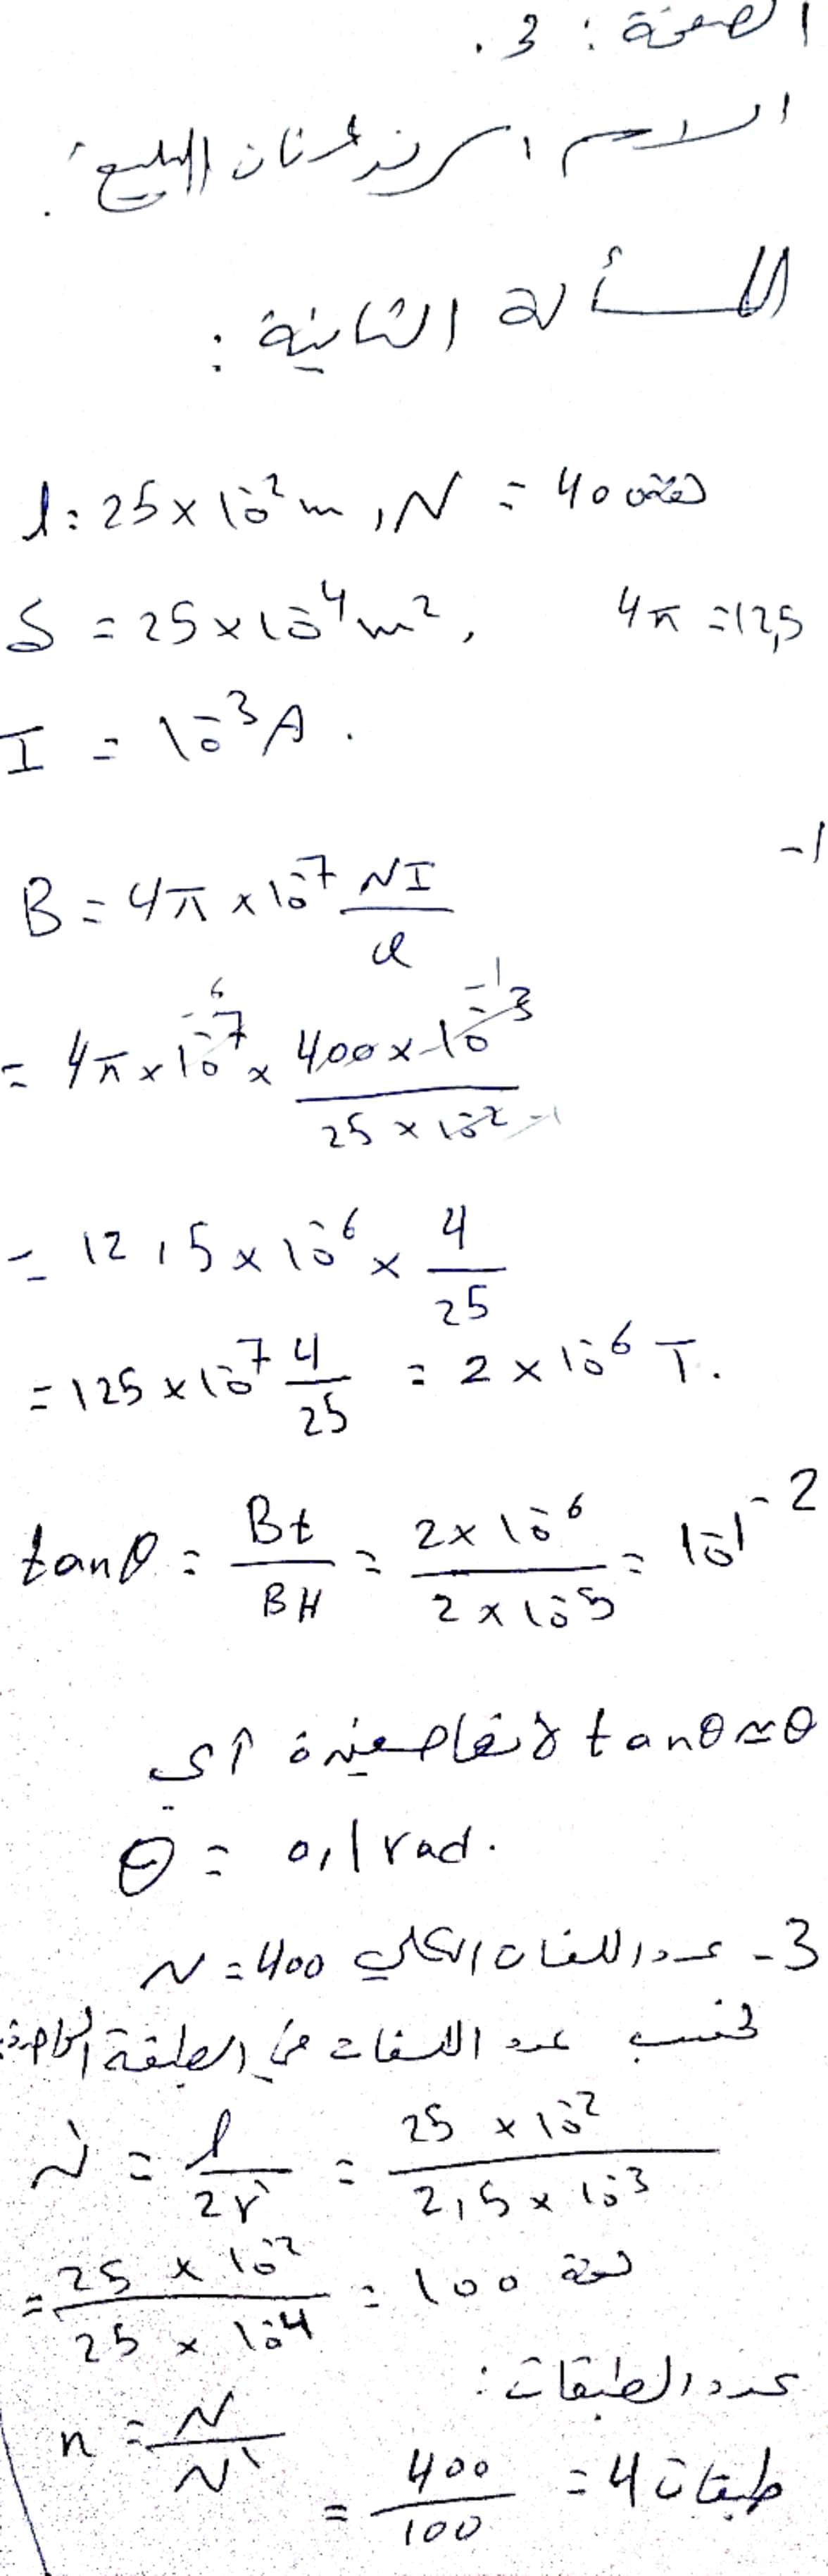 الصفحة : 3.
الاسم عدنان
المسألة الثانية :
l = 25 × 10⁻² m , N = 400 لفة
S = 25 × 10⁻⁴ m² , 4π = 12,5
I = 10⁻³ A .
1-
B = 4π × 10⁻⁷ NI/l
= 4π × 10⁻⁷ × (400 × 10⁻³)/(25 × 10⁻²)
= 12,5 × 10⁻⁶ × 4/25
= 125 × 10⁻⁷ 4/25 = 2 × 10⁻⁶ T.
2-
tanθ = Bt/BH = (2 × 10⁻⁶)/(2 × 10⁻⁵) = 10⁻¹
tanθ ≈ θ لأنها صغيرة أي
θ = 0,1 rad.
3- عدد اللفات الكلي N = 400
نحسب عدد اللفات في الطبقة الواحدة:
N' = l/2r' = (25 × 10⁻²)/(2,5 × 10⁻³)
= (25 × 10⁻²)/(25 × 10⁻⁴) = 100 لفة
عدد الطبقات :
n = N/N'
= 400/100 = 4 طبقات